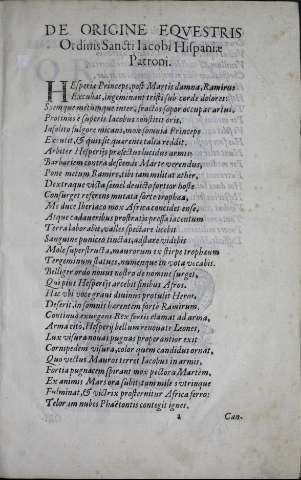 DE ORIGINE EQVESTRIS
Ordinis Sancti Iacobi Hispaniæ
Patroni.
HEsperiæ Princeps, post Martis damna, Ramirus
Excubat, ingeminant tristi sub corde dolores:
Spemque metumque inter, fractos sopor occupat artus,
Protinus è superis Iacobus constitit oris,
Insolito fulgore micans, mox somnia Princeps
Excutit, & quis sit quærenti talia reddit.
Arbiter Hesperijs præfectus lucidus armis
Barbariem contra descendi Marte verendus,
Pone metum Ramire, tibi iam militat æther,
Dextraque victa semel deuicto fortior hoste
Consurget referens mutata sorte trophæa,
Me duce Iberiaco mox Africa concidet ense,
Atque cadaueribus prostratis pressa iacentum
Terra laborabit, valles spectare licebit
Sanguine puniceo tinctas, adstare videbis
Mole superstructa, maurorum ex stirpe trophæum
Tergeminum status, numenque in vota vocabis.
Belliger ordo nouus nostro de nomine surget,
Qui pius Hesperijs arcebit finibus Afros.
Hic vbi voce graui diuinus protulit Heros,
Deserit in somnis hærentem forte Ramirum.
Continuò exurgens Rex fortis clamat ad arma,
Arma cito, Hesperij bellum renouate Leones,
Lux visura nouas pugnas properantior exit
Cornipedem visura, color quem candidus ornat,
Quo vectus Mauros terret Iacobus in armis,
Fortia pugnacem spirant mox pectora Martem,
Ex animis Mars ora subit tum mille vtrinque
Fulminat, & victrix prosternitur Africa ferro:
Telorum nubes Phaëtontis contegit ignes.
Can-